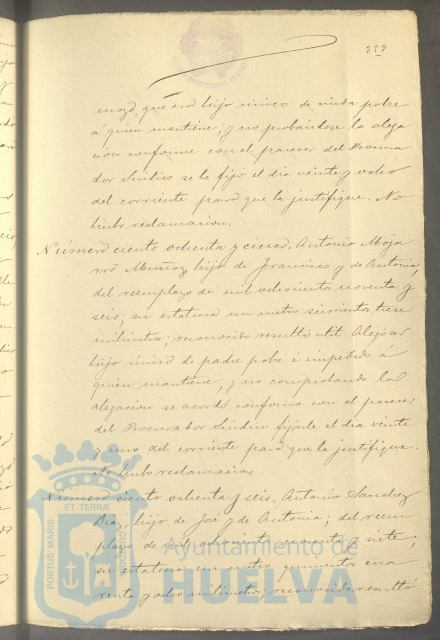 359
mozo, que era hijo único de viuda pobre
á quien mantiene; y no probándose la alega
cion conforme con el parecer del Procura
dor Síndico se le fijó el dia veinte y ocho
del corriente para que la justifique. No
hubo reclamacion.
Número ciento ochenta y cinco. Antonio Moja
rro Muñoz, hijo de Francisco y de Antonia,
del reemplazo de mil ochocientos noventa y
seis; su estatura un metro seiscientos trece
milímetros; reconocido resultó util. Alegó ser
hijo único de padre pobre é impedido á
quien mantiene; y no comprobando la
alegacion se acordó conforme con el parecer
del Procurador Síndico fijarle el dia veinte
y uno del corriente para que la justifique.
No hubo reclamacion.
Número ciento ochenta y seis. Antonio Sanchez
Diaz, hijo de José y de Antonia; del reem
plazo de mil ochocientos noventa y siete;
su estatura un metro quinientos cua
renta y ocho milímetros; reconocido resultó
PORTUS MARIS
ET TERRÆ
CUSTODIA
Ayuntamiento de
HUELVA